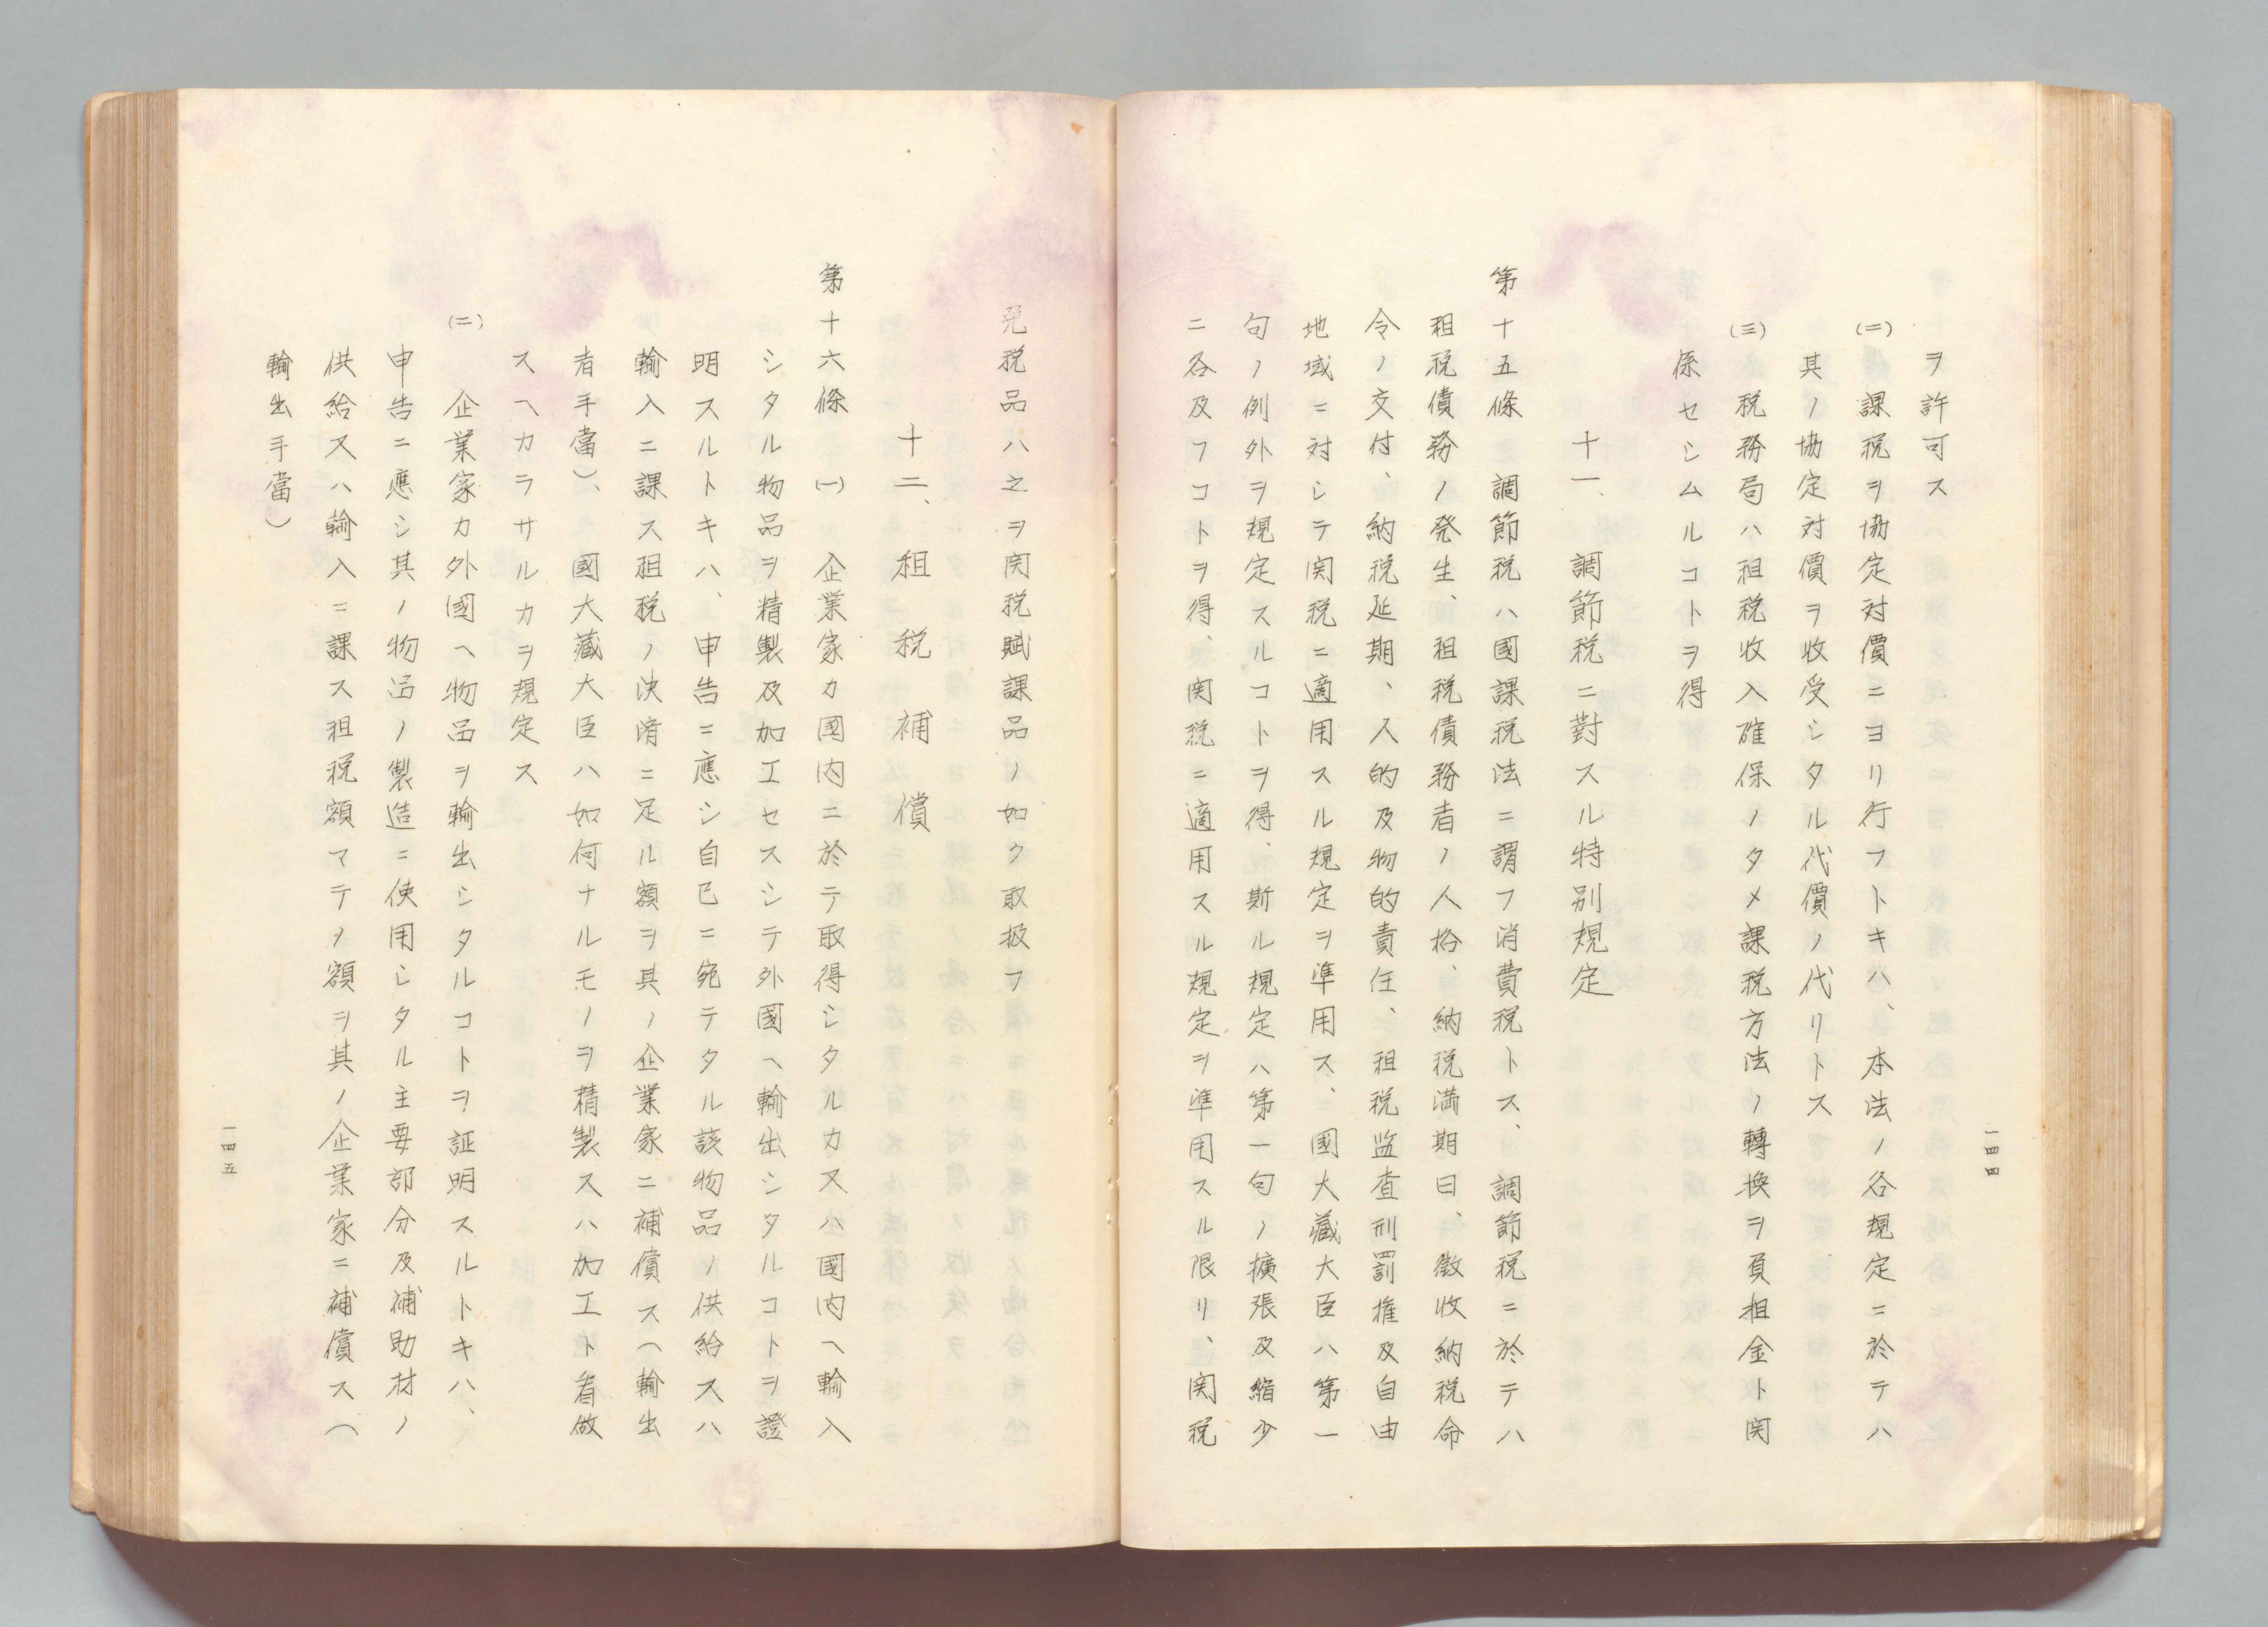 ヲ許可ス
(二) 課税ヲ協定対價ニヨリ行フトキハ、本法ノ各規定ニ於テハ
其ノ協定対價ヲ收受シタル代價ノ代リトス
(三) 税務局ハ租税收入確保ノタメ課税方法ノ轉換ヲ負担金ト関
係セシムルコトヲ得
十一、調節税ニ對スル特別規定
第十五條 調節税ハ國課税法ニ謂フ消費税トス、調節税ニ於テハ
租税債務ノ発生、租税債務者ノ人格、納税満期日、徴收納税命
令ノ交付、納税延期、人的及物的責任、租税監査刑罰権及自由
地域ニ対シテ関税ニ適用スル規定ヲ準用ス、國大藏大臣ハ第一
句ノ例外ヲ規定スルコトヲ得、斯ル規定ハ第一句ノ擴張及縮少
ニ各及フコトヲ得、関税ニ適用スル規定ヲ準用スル限リ、関税
一四四
免税品ハ之ヲ関税賦課品ノ如ク取扱フ
十二、租税補償
第十六條 (一) 企業家カ國内ニ於テ取得シタルカ又ハ國内ヘ輸入
シタル物品ヲ精製及加工セスシテ外國ヘ輸出シタルコトヲ證
明スルトキハ、申告ニ應シ自己ニ宛テタル該物品ノ供給又ハ
輸入ニ課ス租税ノ決済ニ足ル額ヲ其ノ企業家ニ補償ス(輸出
者手當)、國大藏大臣ハ如何ナルモノヲ精製又ハ加工ト看做
スヘカラサルカヲ規定ス
(二) 企業家カ外國ヘ物品ヲ輸出シタルコトヲ証明スルトキハ、
申告ニ應シ其ノ物品ノ製造ニ使用シタル主要部分及補助材ノ
供給又ハ輸入ニ課ス租税額マテノ額ヲ其ノ企業家ニ補償ス(
輸出手當)
一四五